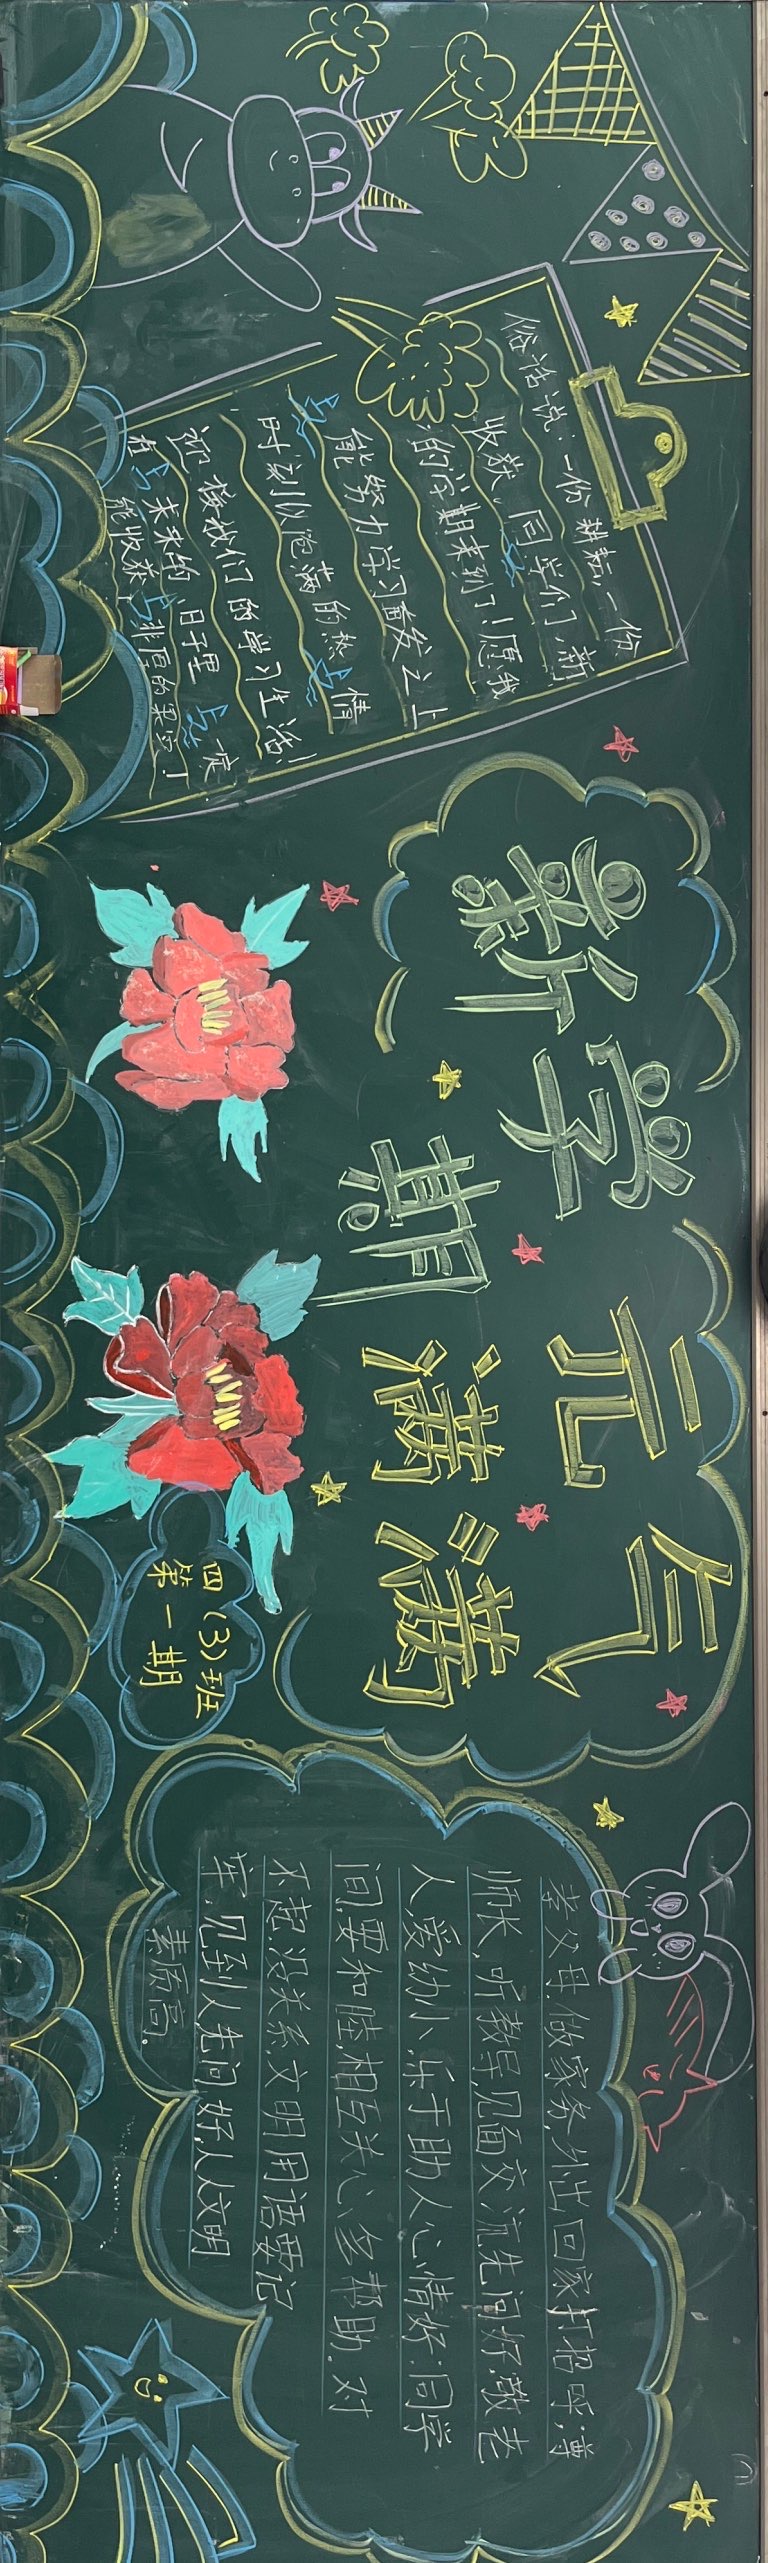 俗话说:一份耕耘,一份
收获。同学们,新
的学期来到了!愿我
能努力学习奋发之上
时刻以饱满的热情
迎接我们的学习生活!
在未来的日子里一定
能收获非厚的果实!
新学期
元气
满满
四(3)班
第一期
孝父母,做家务,外出回家打招呼,尊
师长,听教导,见面交流先问好,敬老
人,爱幼小,乐于助人心情好:同学
间,要和睦,相互关心多帮助.对
不起,没关系,文明用语要记
牢.见到人先问好,人人文明
素质高.